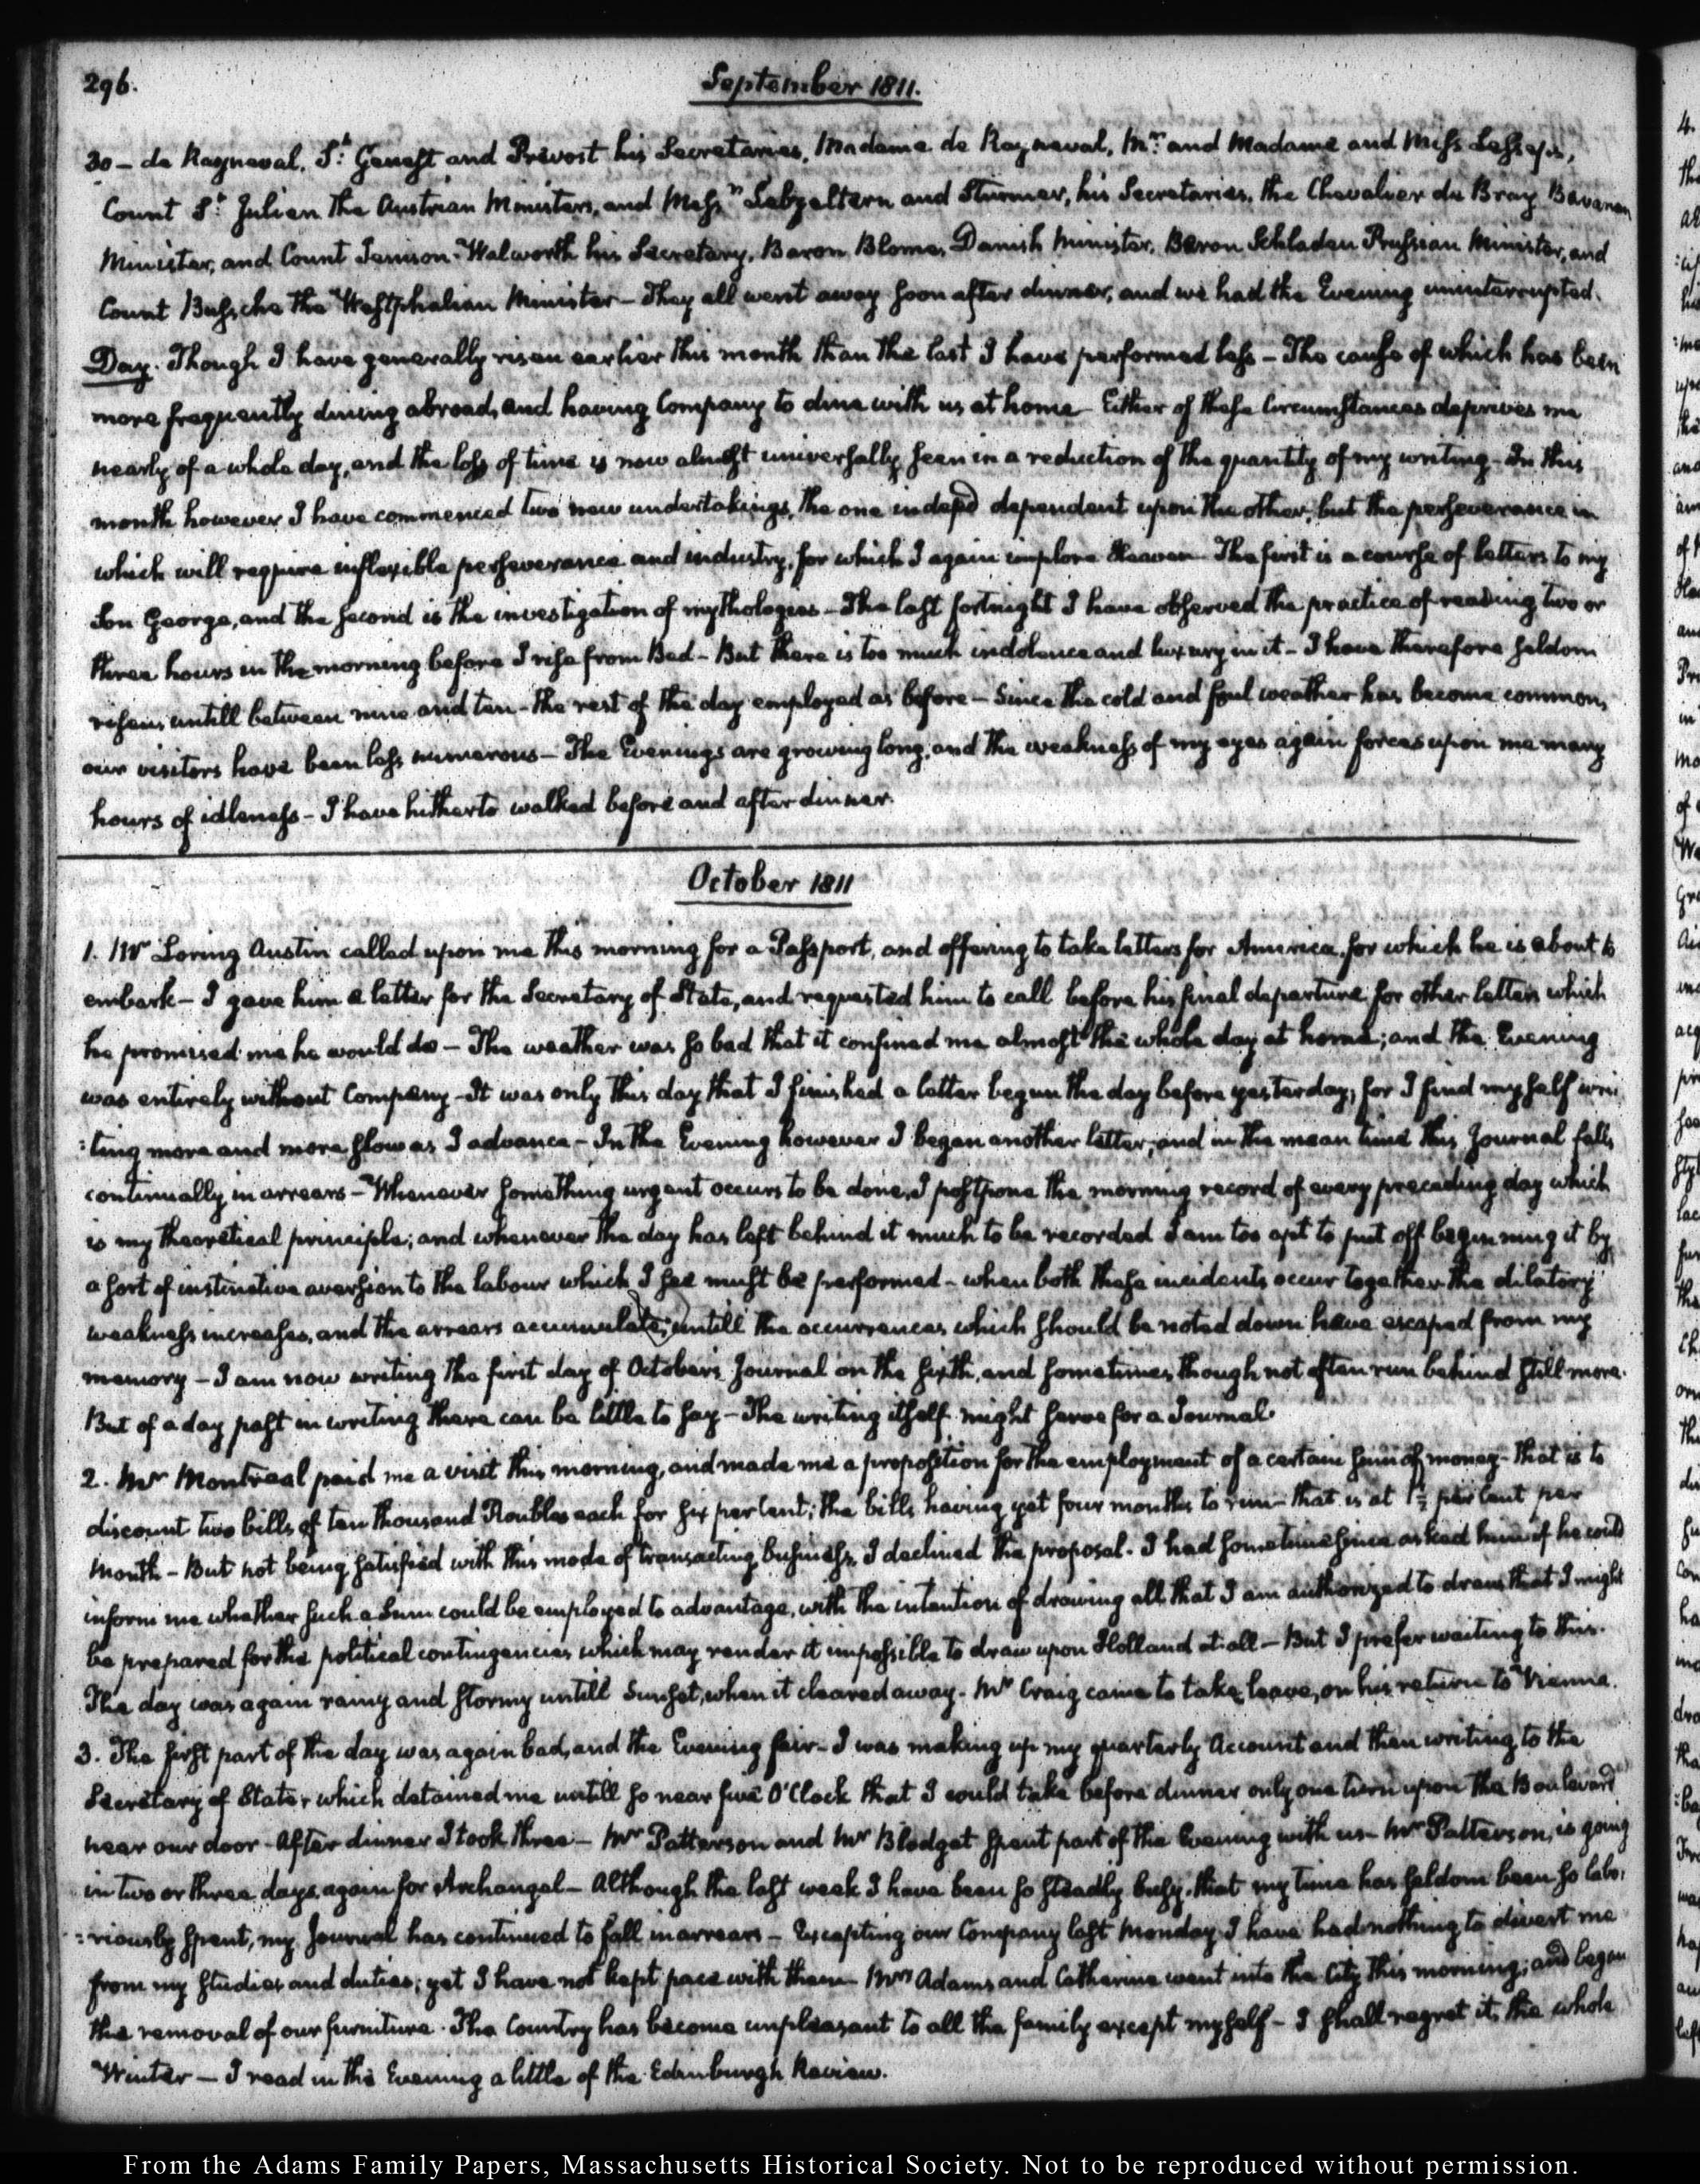 296.
September 1811.
30 – de Rayneval. St: Genest and Prevost his Secretaries, Madame de Rayneval, Mr: and Madame and Miss Lesseps,
Count St: Julien the Austrian Minister, and Messrs Lebzeltern and Sturmer, his Secretaries, the Chevalier de Bray Bavarian
Minister, and Count Jenison-Walworth his Secretary, Baron Blome, Danish Minister, Baron Schladen Prussian Minister, and
Count Bussche the Westphalian Minister – They all went away soon after dinner, and we had the Evening uninterrupted.
Day. Though I have generally risen earlier this month than the last I have performed less – The cause of which has been
more frequently dining abroad, and having Company to dine with us at home – Either of these Circumstances deprives me
nearly of a whole day, and the loss of time is now almost universally seen in a reduction of the quantity of my writing – In this
month however I have commenced two new undertakings, the one dependent upon the other, but the perseverance in
which will require inflexible perseverance and industry, for which I again implore Heaven – The first is a course of letters to my
Son George, and the second is the investigation of mythologies – The last fortnight I have observed the practice of reading two or
three hours in the morning before I rise from Bed – But there is too much indolence and luxury in it – I have therefore seldom
risen, untill between nine and ten – the rest of the day employed as before – Since the cold and foul weather has become common,
our visitors have been less numerous – The Evenings are growing long, and the weakness of my eyes again forces upon me many
hours of idleness – I have hitherto walked before and after dinner.
October 1811
1. Mr Loring Austin called upon me this morning for a Passport, and offering to take letters for America, for which he is about to
embark – I gave him a letter for the Secretary of State, and requested him to call before his final departure for other letters which
he promised me he would do – The weather was so bad that it confined me almost the whole day at home; and the Evening
was entirely without Company – It was only this day that I finished a letter begun the day before yesterday, for I find myself wri
:ting more and more slow as I advance – In the Evening however I began another letter, and in the mean time this Journal falls
continually in arrears – Whenever something urgent occurs to be done, I postpone the morning record of every preceding day which
is my theoretical principle; and whenever the day has left behind it much to be recorded I am too apt to put off beginning it by
a sort of instinctive aversion to the labour which I see must be performed – when both these incidents occur together the dilatory
weakness increases, and the arrears accumulate, untill the occurrences which should be noted down have escaped from my
memory – I am now writing the first day of October's Journal on the sixth, and sometimes though not often run behind still more.
But of a day past in writing there can be little to say – The writing itself might serve for a Journal.
2. Mr Montreal paid me a visit this morning, and made me a proposition for the employment of a certain sum of money – that is to
discount two bills of ten thousand Roubles each for six per Cent; the bills having yet four months to run – that is at 1½ per Cent per
Month – But not being satisfied with this mode of transacting business, I declined the proposal. I had sometime since asked him if he could
inform me whether such a Sum could be employed to advantage, with the intention of drawing all that I am authorized to draw, that I might
be prepared for the political contingencies which may render it impossible to draw upon Holland at all – But I prefer waiting to this.
The day was again rainy and stormy untill Sunset, when it cleared away. Mr Craig came to take leave, on his return to Vienna.
3. The first part of the day was again bad, and the Evening fair – I was making up my quarterly Account and then writing to the
Secretary of State, which detained me untill so near five O'Clock that I could take before dinner only one turn upon the Boulevard
near our door – After dinner I took three – Mr Patterson and Mr Blodget spent part of the Evening with us – Mr Patterson, is going
in two or three days again for Archangel – Although the last week I have been so steadily busy, that my time has seldom been so labo:
:riously spent, my Journal has continued to fall in arrears – Excepting our Company last Monday I have had nothing to divert me
from my studies and duties; yet I have not kept pace with them – Mrs Adams and Catherine went into the City this morning; and began
the removal of our furniture. The Country has become unpleasant to all the family except myself – I shall regret it, the whole
Winter – I read in the Evening a little of the Edinburgh Review.
From the Adams Family Papers, Massachusetts Historical Society. Not to be reproduced without permission.